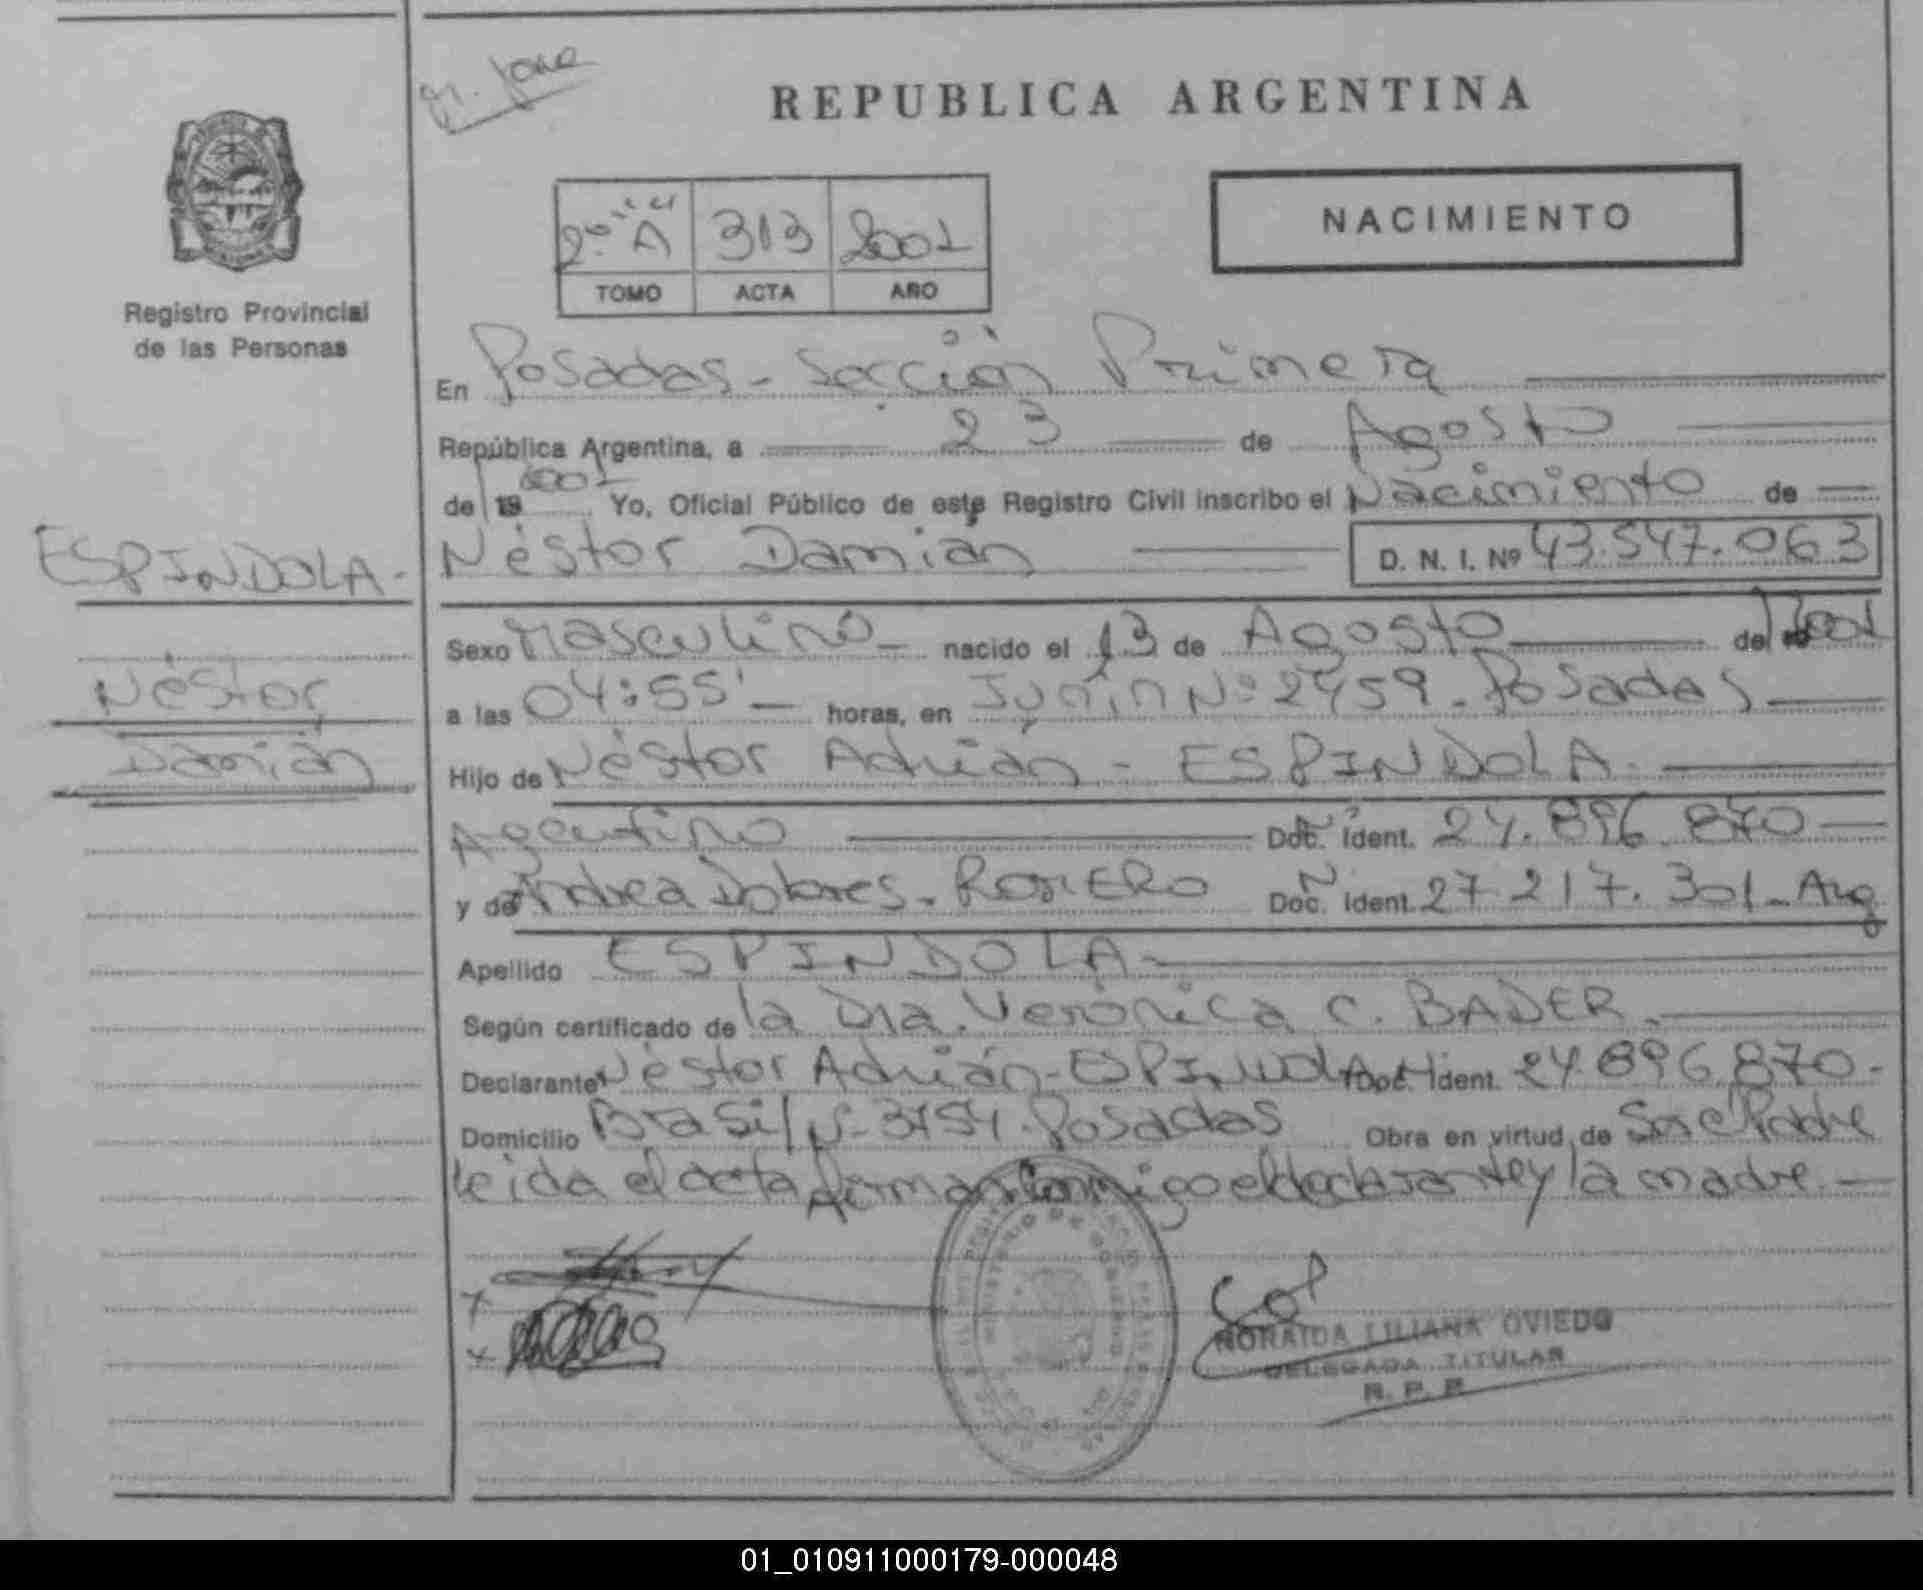 REPUBLICA ARGENTINA
NACIMIENTO
2º "A" 313 2001
TOMO ACTA AÑO
Registro Provincial
de las Personas
En Posadas - Sección Primera
República Argentina, a 23 de Agosto
de 19 2001 Yo, Oficial Público de este Registro Civil inscribo el Nacimiento de
ESPINDOLA -
Néstor Damián D. N. I. Nº 43.547.063
Sexo Masculino - nacido el 13 de Agosto de 2001
Néstor
a las 04:55' - horas, en Junín Nº 2459 - Posadas
Damián
Hijo de Néstor Adrián - ESPINDOLA -
Argentino Doc. Ident. 24.896.870 -
y de Andrea Dolores - ROMERO Doc. Ident. 27 217.301 - Arg
Apellido ESPINDOLA -
Según certificado de la Dra. Verónica C. BADER -
Declarante Néstor Adrián - ESPINDOLA Doc. Ident. 24.896.870 -
Domicilio Brasil Nº 3754 - Posadas Obra en virtud de Ser el Padre
leida el acta firman conmigo el declarante y la madre. -
NORAIDA LILIANA OVIEDO
DELEGADA TITULAR
R. P. P.
01_010911000179-000048